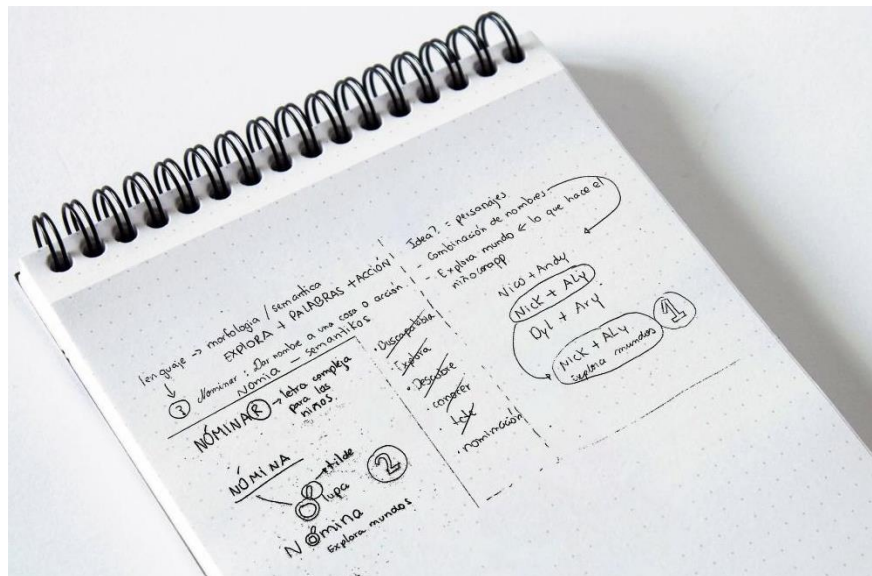 lenguaje -> morfología / semantica
EXPLORA + PALABRAS + ACCIÓN
Nominar : Dar nombre a una cosa o acción
Nomia - semantikos
NÓMINAR -> letra compleja
para las
niños
NÓMINA
tilde
lupa
2
Nómina
Explora mundos
Explora
Descubre
conocer
nominación
Idea?. = personajes
- Combinación de nombres
- Explora mundo <- lo que hace el
niño en app
Nico + Andy
Nick + ALy
Dyl + Ary
Nick + ALy
Explora mundos
1